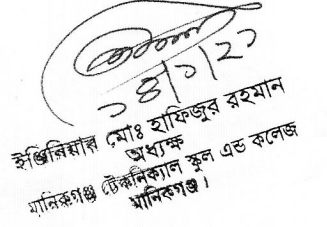 ১৪/১/২১
ইঞ্জিনিয়ার মোঃ হাফিজুর রহমান
অধ্যক্ষ
মানিকগঞ্জ টেকনিক্যাল স্কুল এন্ড কলেজ
মানিকগঞ্জ।